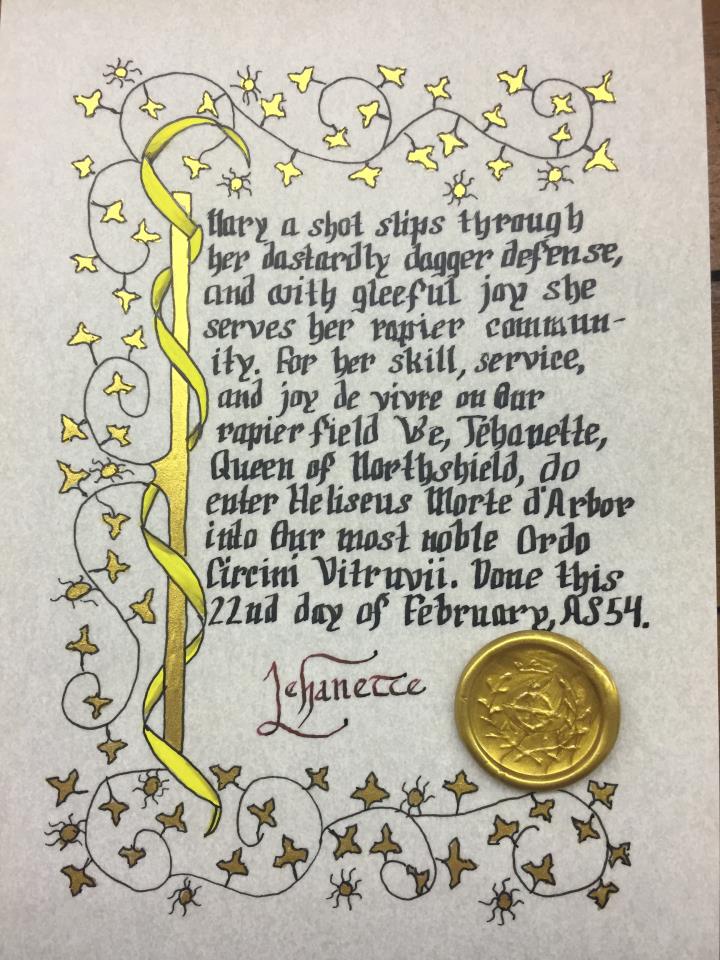 Nary a shot slips through
her dastardly dagger defense,
and with gleeful joy she
serves her rapier commun-
ity. For her skill, service,
and joy de vivre on Our
rapier field We, Tehanette,
Queen of Northshield, do
enter Heliseus Morte d'Arbor
into Our most noble Ordo
Circini Vitruvii. Done this
22nd day of February, AS54.
Tehanette